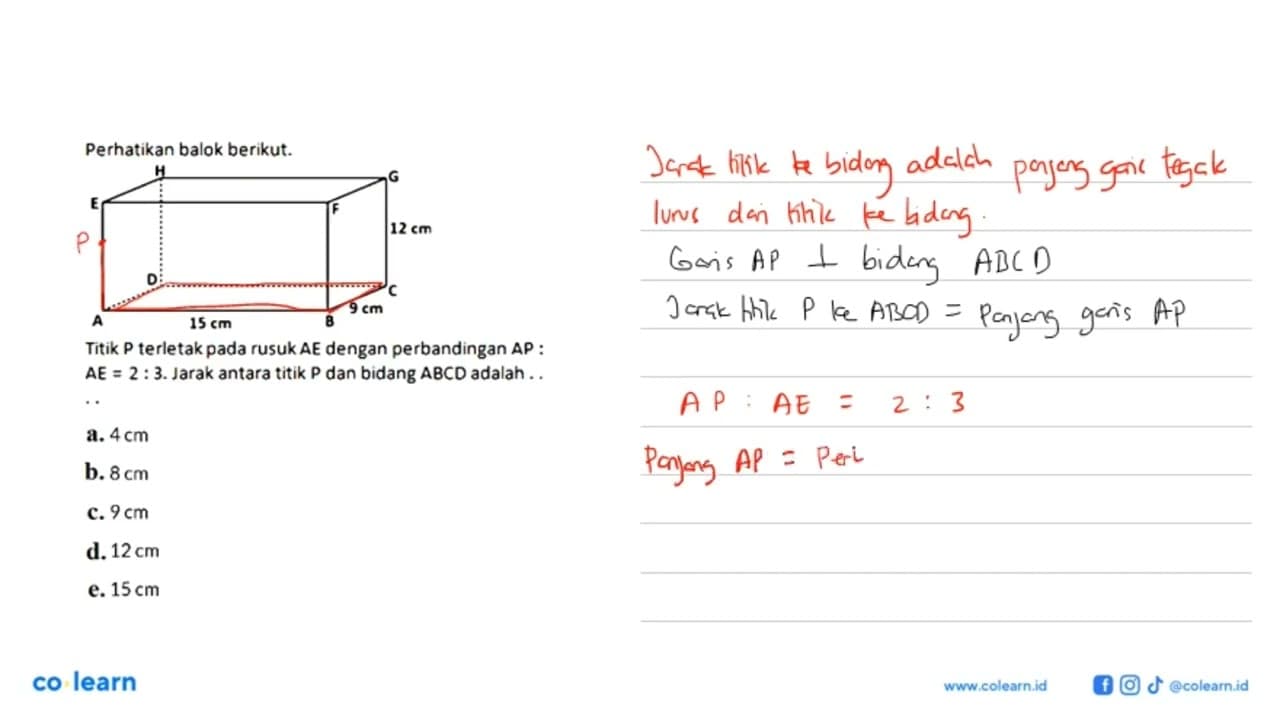 Perhatikan balok berikut.
H
G
E
F
P
12 cm
D
C
9 cm
A
15 cm
B
Titik P terletak pada rusuk AE dengan perbandingan AP :
AE = 2 : 3. Jarak antara titik P dan bidang ABCD adalah . .
. .
a. 4 cm
b. 8 cm
c. 9 cm
d. 12 cm
e. 15 cm
Jarak titik ke bidang adalah panjang garis tegak
lurus dari titik ke bidang.
Garis AP ⊥ bidang ABCD
Jarak titik P ke ABCD = Panjang garis AP
AP : AE = 2 : 3
Panjang AP = Peri
co learn
www.colearn.id
@colearn.id